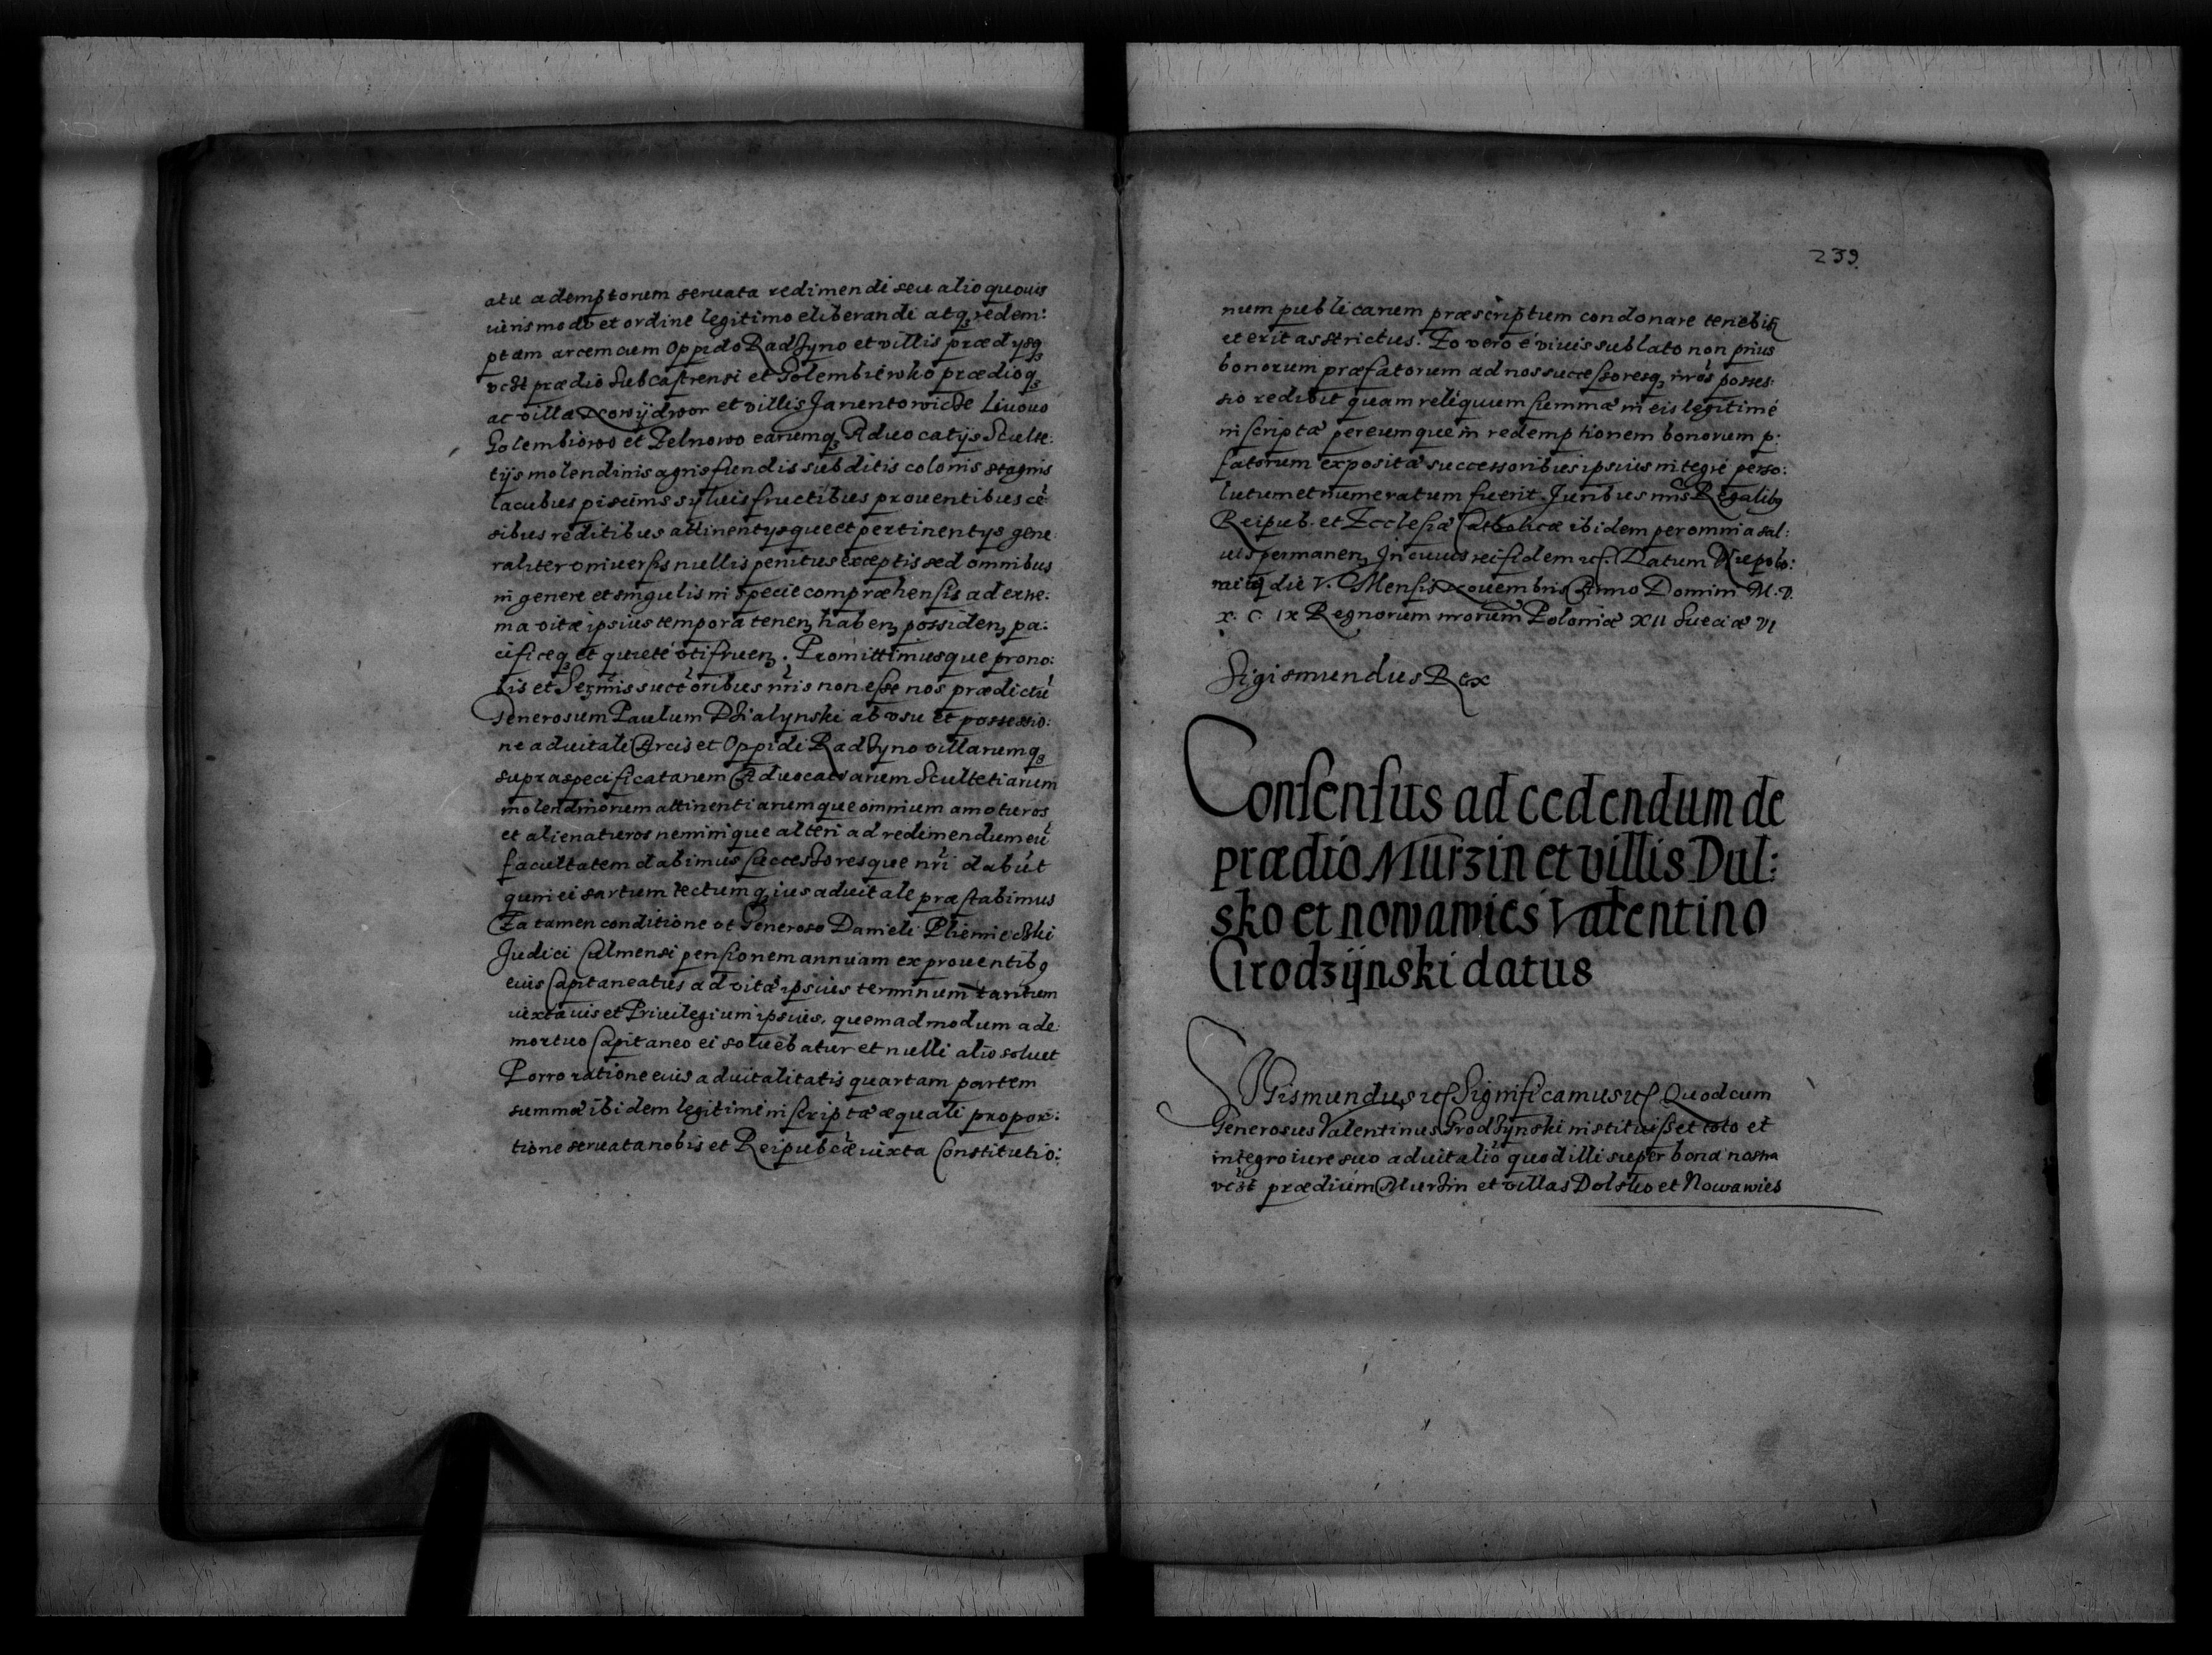 atu ademptorum seruata redimendi seu alio quouis
iuris modo et ordine legitimo eliberandi atq3 redem:
ptam arcem cum Oppido Radzyno et villis prædysq3
vczt prædio Subcastrensi et Golembiewko prædioq3
ac villa Nowÿdwor et villis Janentowicze Liuouo
Golembiowo et Zelnowo earumq3 Aduocatÿs Sculte:
tÿs molendinis agris fundis subditis colonis stagnis
lacubus piscinis syluis fructibus prouentibus cē
sibus reditibus attinentÿsque et pertinentÿs gene
raliter vniuersis nullis penitus exceptis sed omnibus
in genere et singulis in specie compræhensis ad extre:
ma vitæ ipsius tempora tenen3 haben3 possiden3 pa:
cificeq3 et quietè vtifruen3. Promittimusque pro no:
bis et Serm̃is succ̃oribus nr̃is non esse nos prædictū
Generosum Paulum Dzialynski ab vsu et possessio:
ne aduitali Arcis et Oppidi Radzyno villarumq3
supraspecificatarum Aduocatiarum Scultetiarum
molendinorum attinentiarumque omnium amoturos
et alienaturos neminique alteri ad redimendum eū
facultatem dabimus successoresque nr̃i dabūt
quin ei sartum tectumq3 ius aduitale præstabimus
Ea tamen conditione vt Generoso Danieli Plemieczki
Judici Culmensi pensionem annuam ex prouentib9
eius Capitaneatus ad vitæ ipsius terminum tantum
iuxta uis et Priuilegium ipsius, quemadmodum a de
mortuo Capitaneo ei soluebatur et nulli alio soluet
Porro ratione eius aduitalitatis quartam partem
summæ ibidem legitimè inscriptæ æquali propor:
tione seruata nobis et Reipubcæ iuxta Constitutio:
239.
num publicarum præscriptum condonare tenebit
et erit asstrictus. Eo vero è viuis sublato non prius
bonorum præfatorum ad nos successoresq3 nr̃os posses:
sio redibit quam reliquum summæ in eis legitimè
inscriptæ per eumque in redemptionem bonorum p:
fatorum expositæ successoribus ipsius integrè perso:
lutum et numeratum fuerit. Juribus nr̃is Regalib9
Reipub. et Ecclesiæ Catholicæ ibidem per omnia sal:
uis permanen3 In cuius rei fidem etc. Datum Niepolo:
mitiq die V. Mensis Nouembris Anno Domini M. D.
X. C. IX Regnorum nrorum Poloniæ XII Sueciæ VI
Sigismundus Rex
Consensus ad cedendum de
prædio Murzin et villis Dul:
sko et nowawies Valentino
Grodzÿnski datus
SIGismundus etc Significamus etc Quod cum
Generosus Valentinus Grodzynski instituisset toto et
integro iure suo aduitalio quod illi super bona nostra
vczt prædium Murzin et villas Dolsko et Nowawies